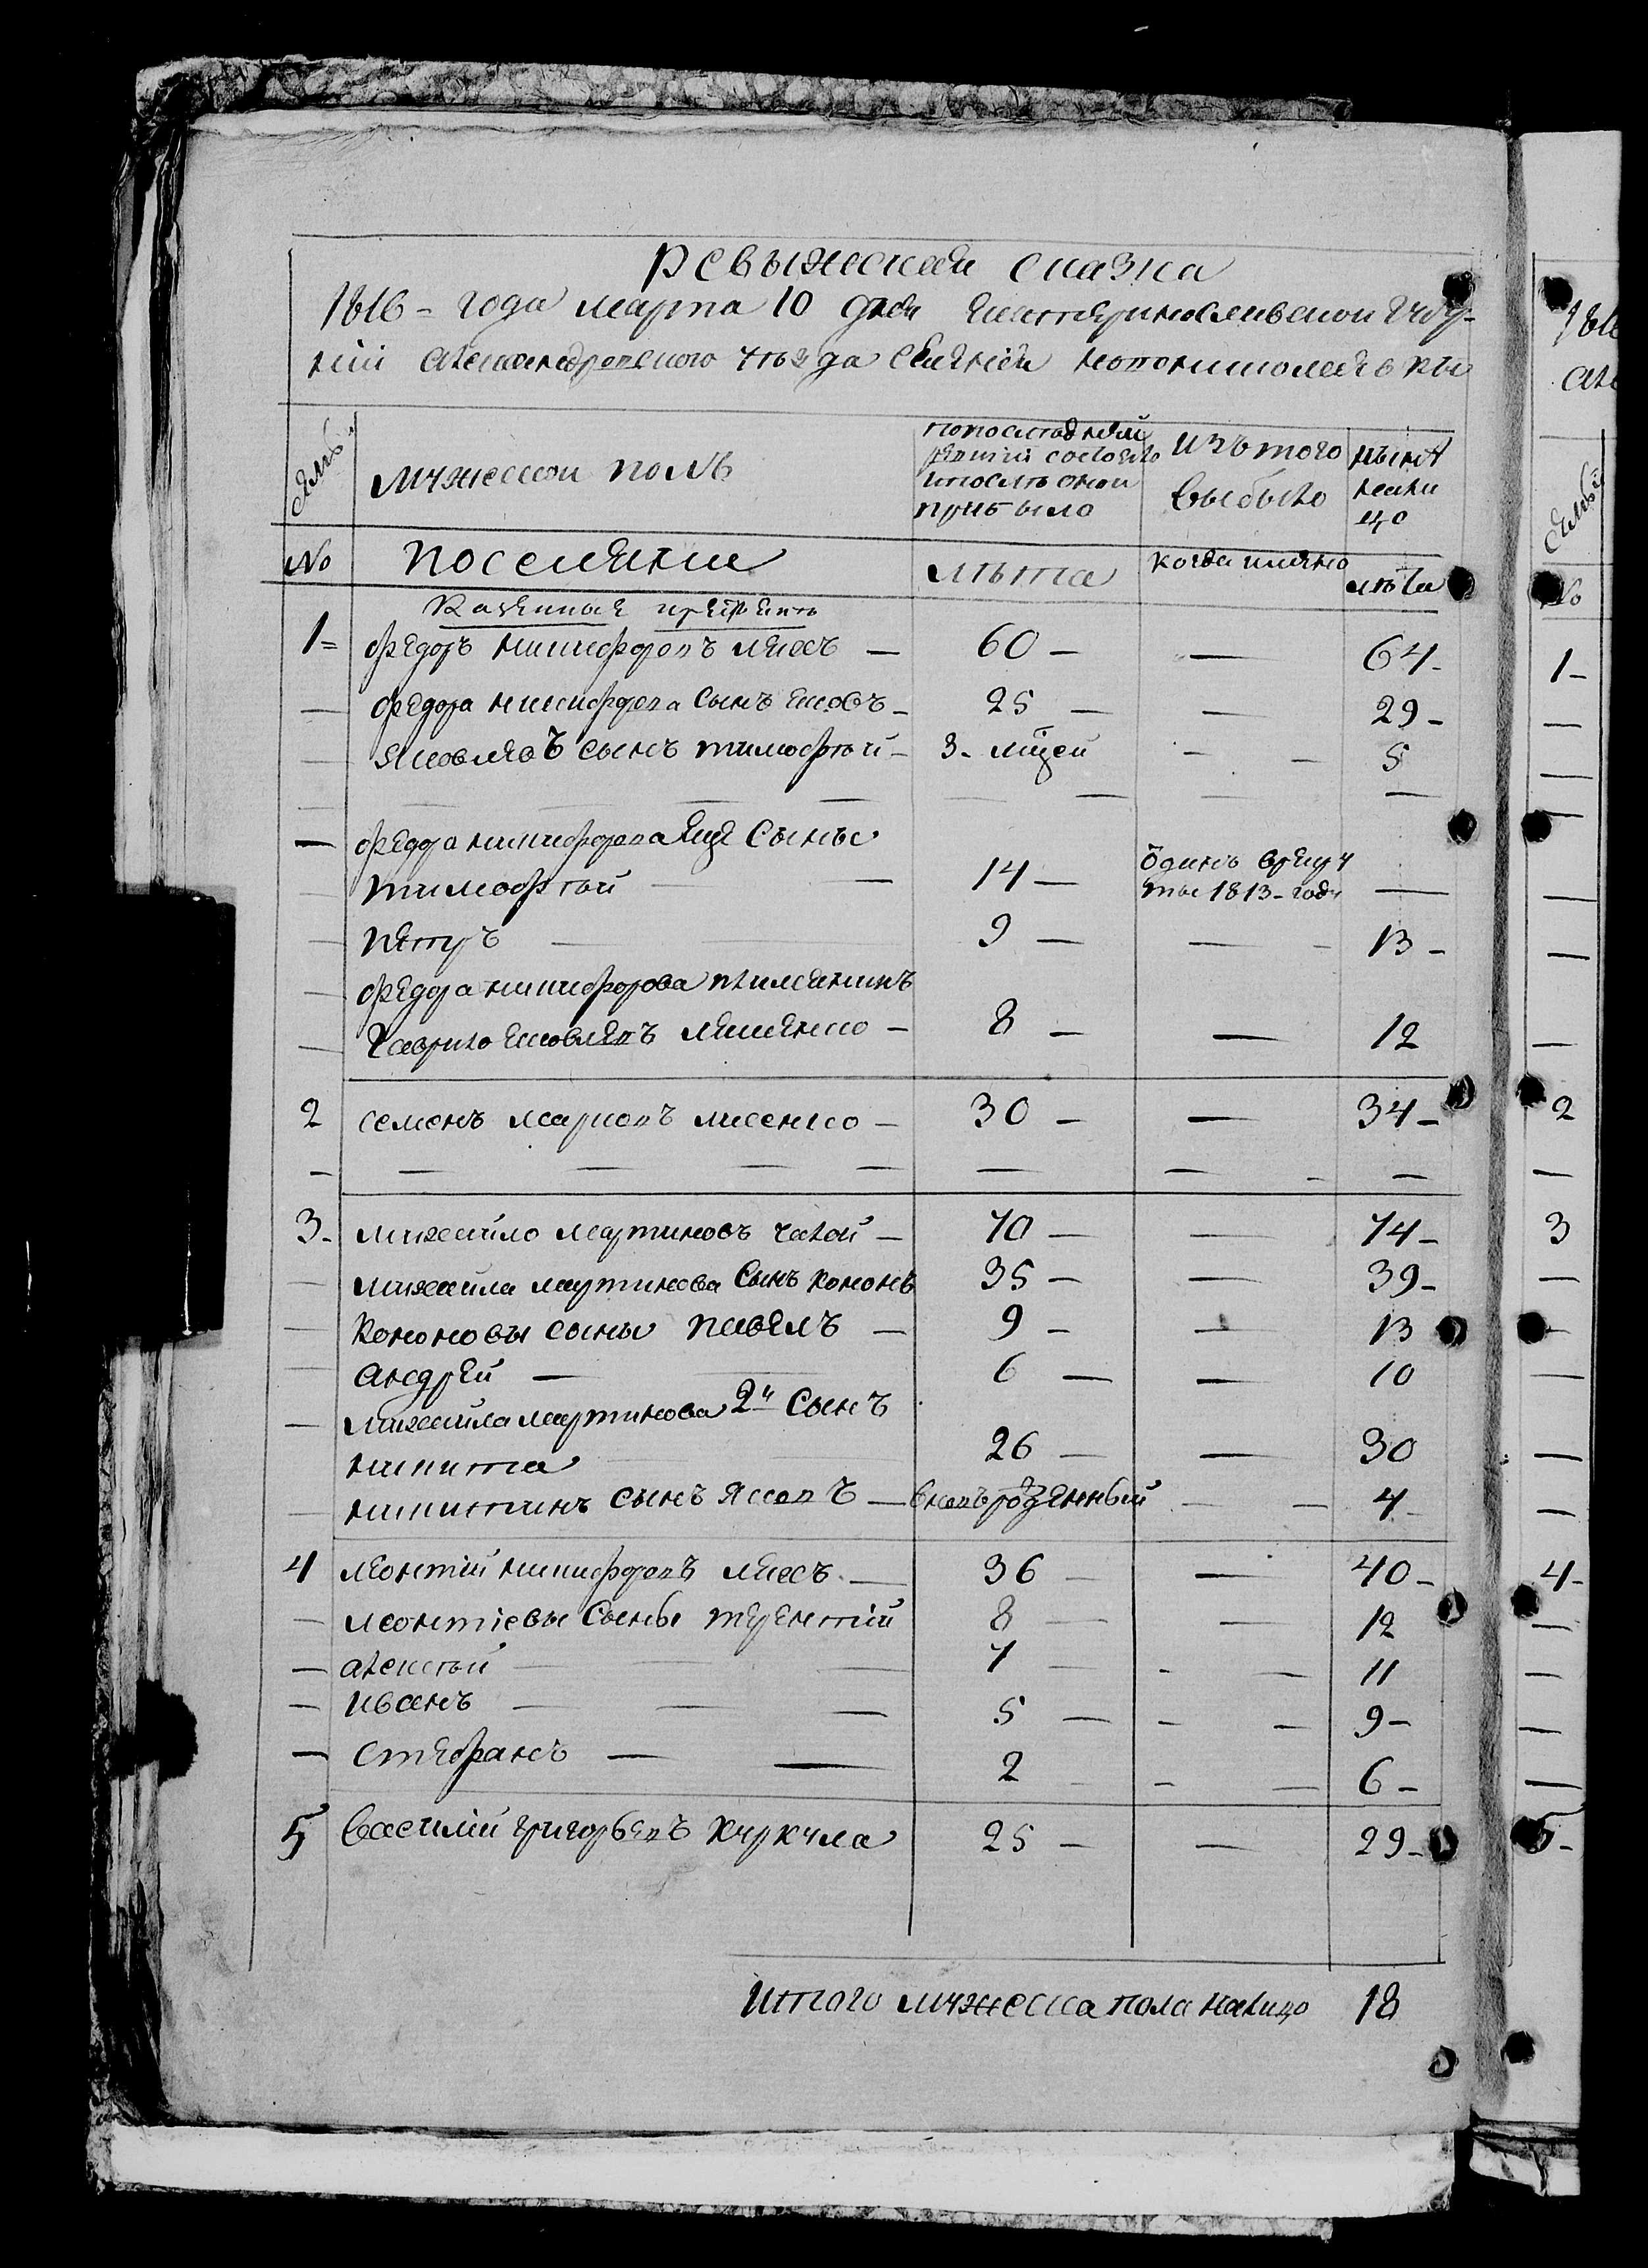 Ревыжская сказка
1816 - года марта 10 дня Екатеринославской Губер-
ніи Александровского уезда Селенія
Семьи
мужеской полъ
по последней
ревизіи состояло
и после оной
прибыло
Изъ того
выбыло
ныне
нали
цо
№ поселяние лета когда имянно лета
Казенные
1= Федоръ никифоровъ — 60 — — 64-
— Федора никифорова Сынъ Яковъ — 25 — — 29 -
— Яковлевъ сынъ тимофей - 3. мцей — 5
— Федора никифорова Еще Сыны
тимофей — 14 — в рекру
ты 1813 - годе —
— петръ — 9 — — 13 -
— Федора никифорова племянникъ
— Гаврило Яковлевъ — 8 — — 12
2 семенъ марковъ лисенко — 30 — — 34 -
3. михайло мартиновъ чалой — 70 — — 74 -
— михайла мартинова Сынъ кононъ 35 — — 39 -
— Кононовы сыны павелъ — 9 — — 13
— андрей — 6 — — 10
— михайла мартинова 2й Сынъ
никита 26 — — 30
— никитинъ сынъ — вновъ рожденный — 4
4 леонтій никифоровъ — 36 — — 40 -
— леонтіевы Сыны терентій 8 — — 12
— алексей — 7 — - — 11
— иванъ — 5 — - — 9 -
— стефанъ — 2 - — 6 -
5 василій григорьевъ Куркула 25 — — 29 -
Итого мужеска пола налицо 18
1816
але
Семьи
№
1 -
2
3
4 -
5 -